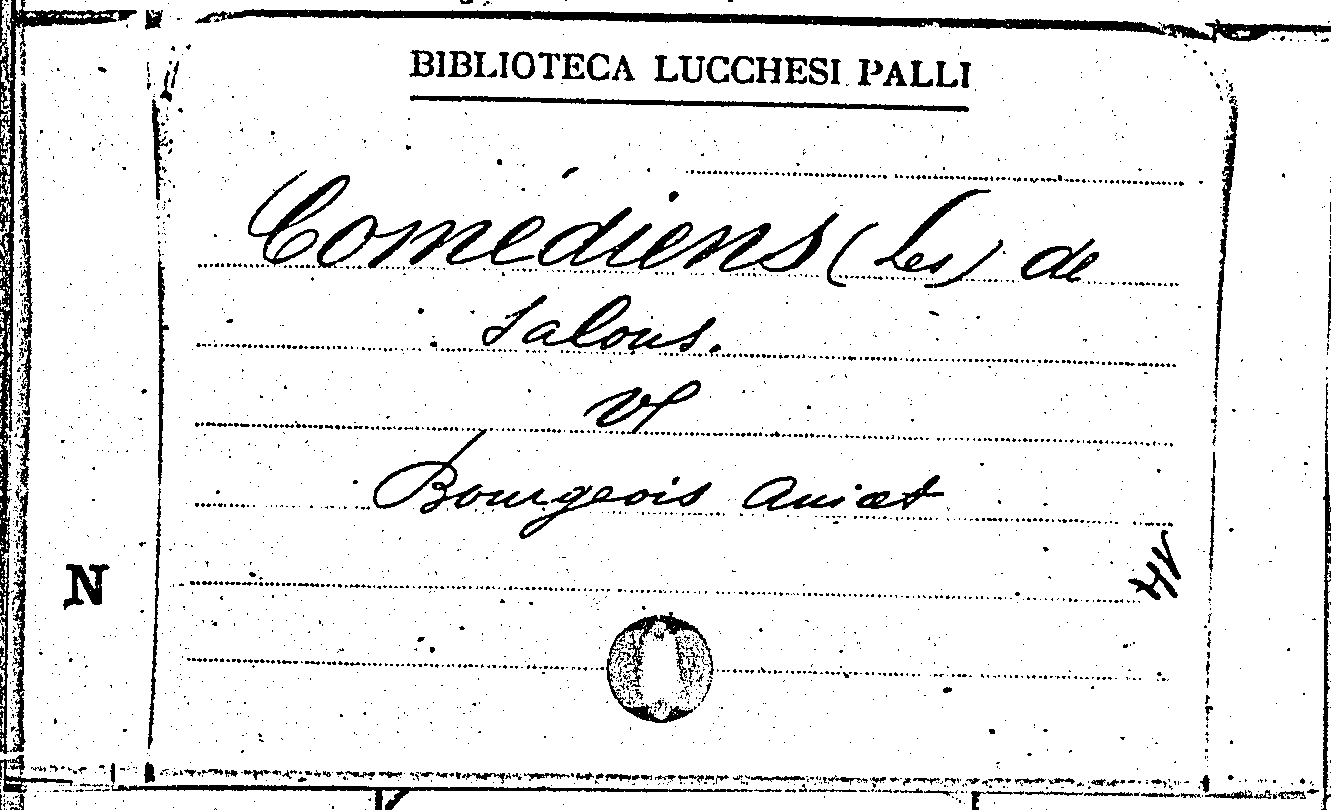 BIBLIOTECA LUCCHESI PALLI
Comédiens (Les) de
salons.
Vl
Bourgeois Anicet
N